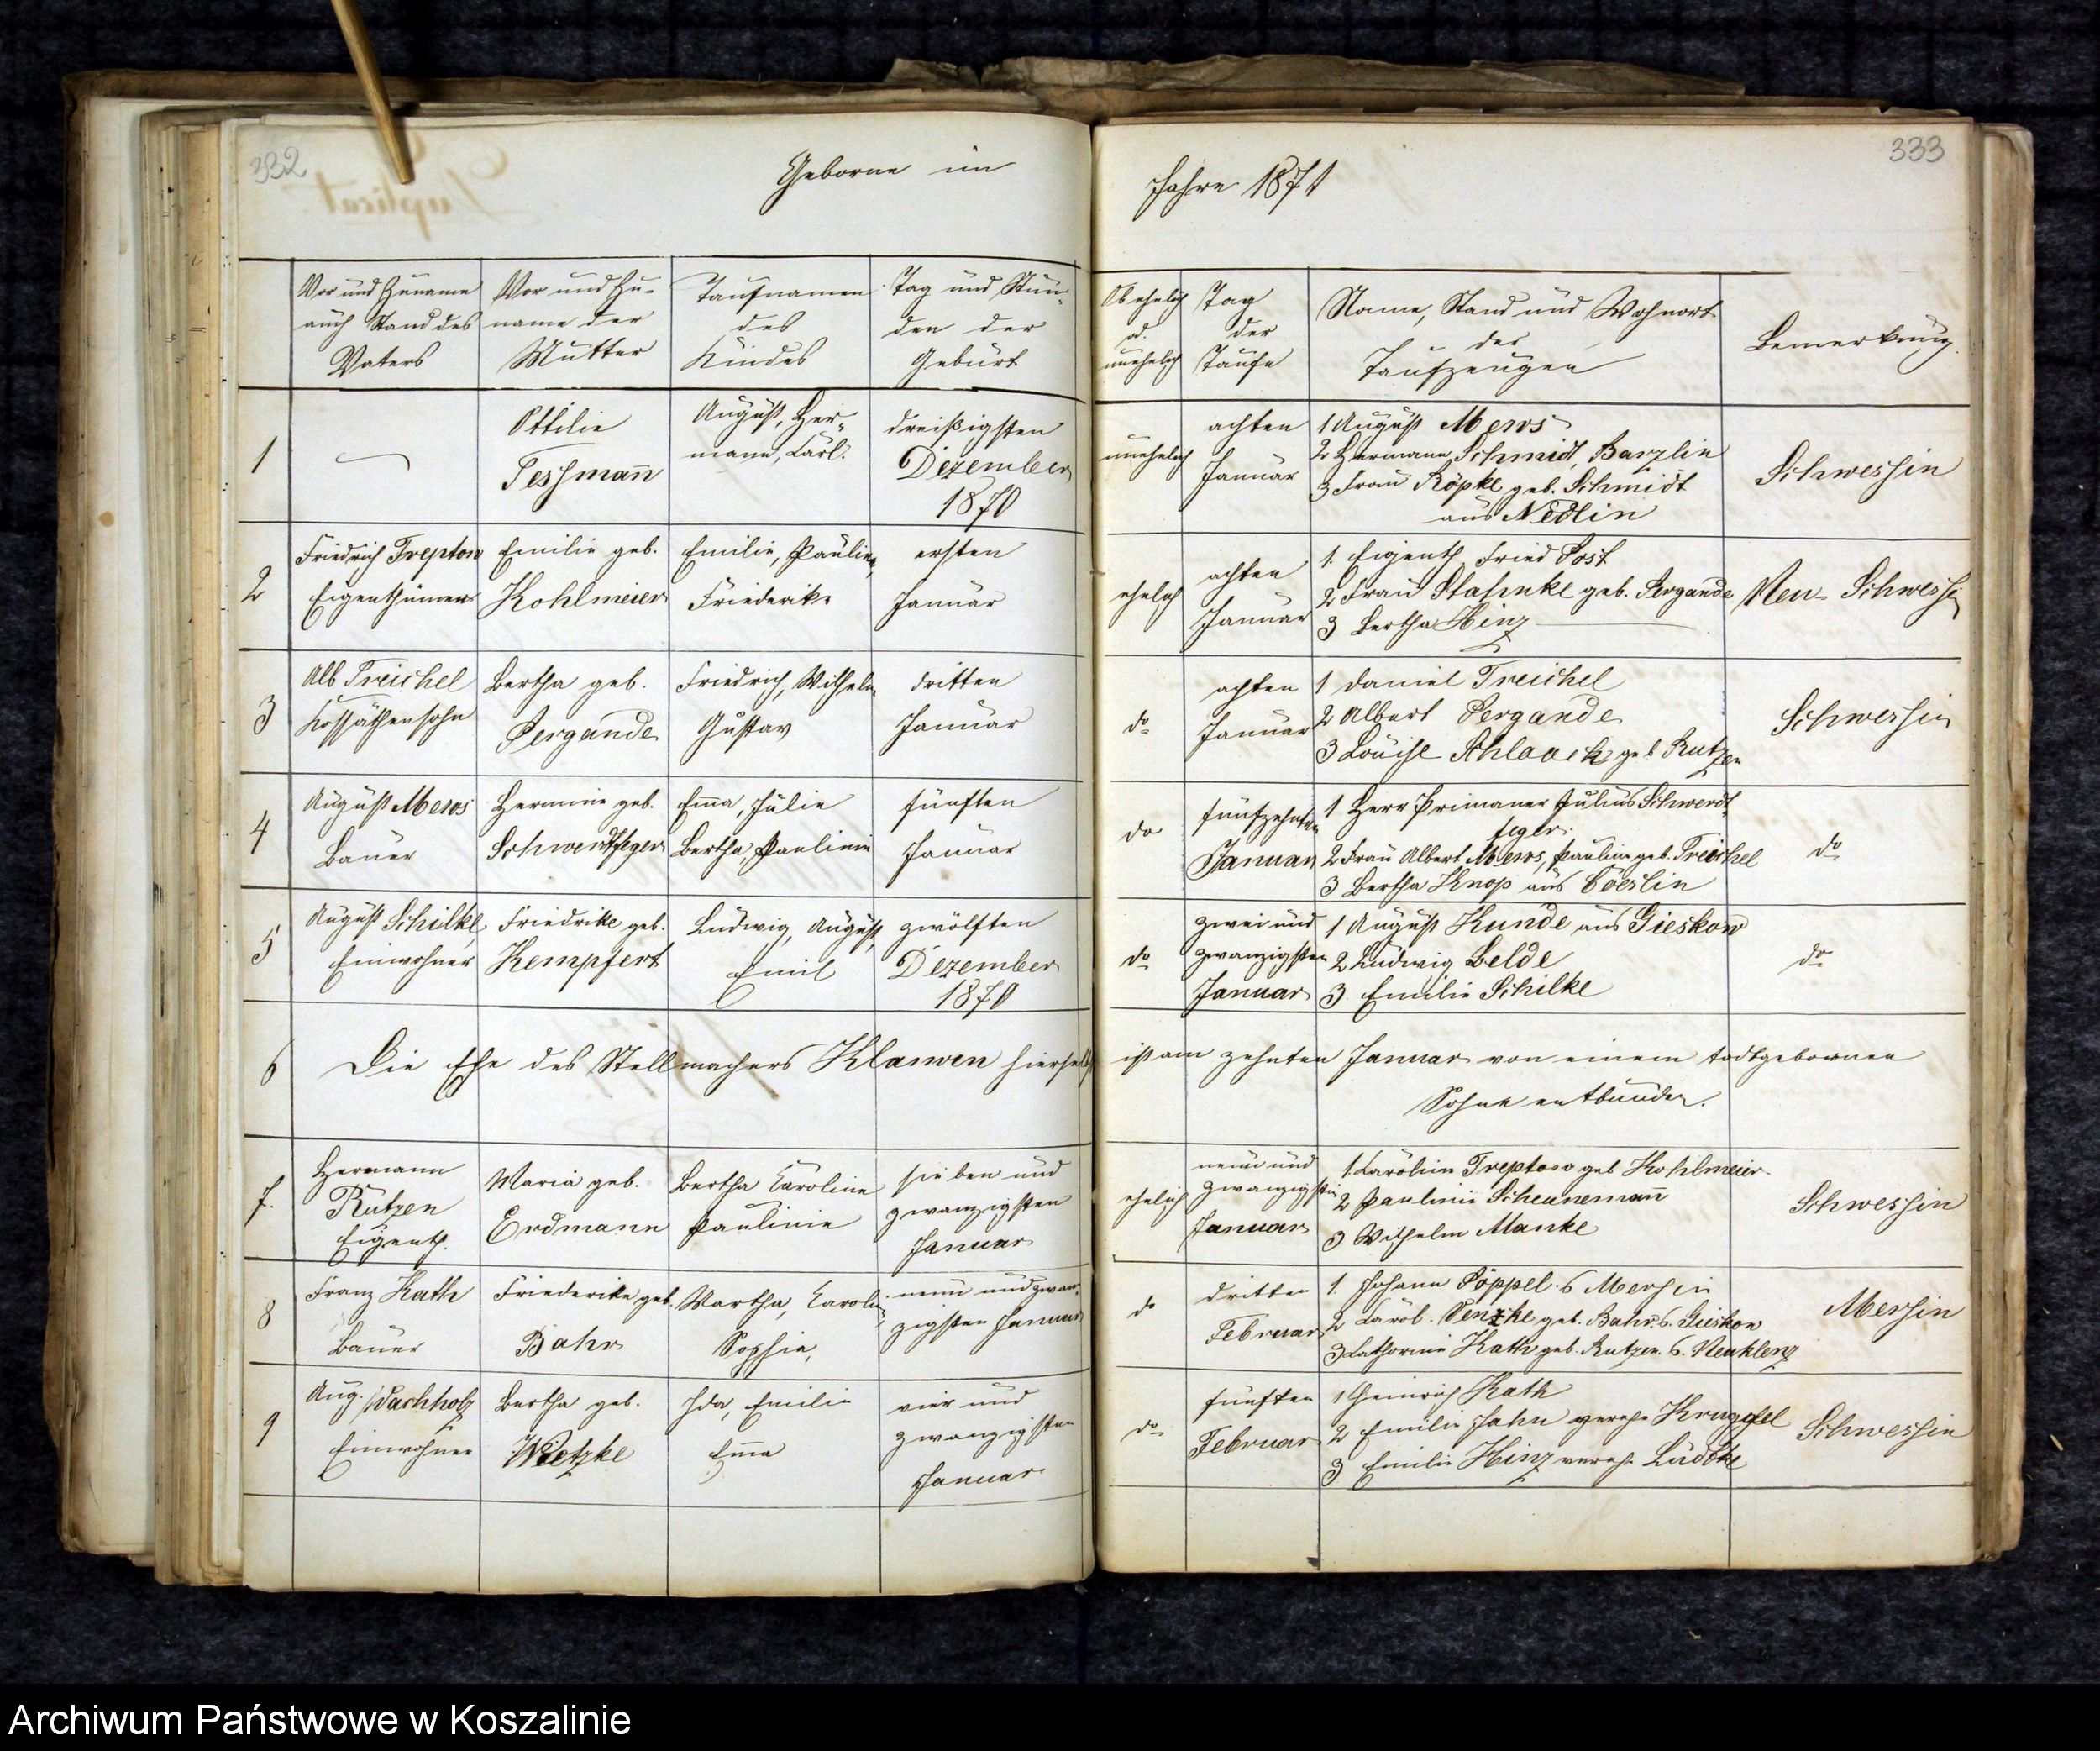 332
333
Geborne im
Jahre 1871
Vor und Zuname
auch Stand des
Vaters
Vor und Zu-
name der
Mutter
Taufnamen
des
Kindes
Tag und Stun-
den der
Geburt
Ob ehelich
od.
unehelich
Tag
der
Taufe
Name, Stand und Wohnort
der
Taufzeugen
Bemerkung.
1
Ottilie
Tessmann
August, Her-
mann, Carl.
dreißigsten
Dezember
1870
unehelich
achten
Januar
1 August Mews
2 Hermann Schmidt, Barzlin
3 Frau Röpke geb. Schmidt
aus Nedlin
Schwessin
2
Friedrich Treptow
Eigenthümer
Emilie geb.
Kohlmeier
Emilie, Pauline,
Friederike
ersten
Januar
ehelich
achten
Januar
1. Eigenth Fried Post
2 Frau Stahnke geb. Pergande
3 Bertha Hinz
Neu-Schwessin
3
Alb Treichel
Kossäthensohn
Bertha geb.
Pergande
Friedrich, Wilhelm
Gustav
dritten
Januar
do
achten
Januar
1 Daniel Treichel
2 Albert Pergande
3 Louise Schlaack geb Rutzen
Schwessin
4
August Mews
Bauer
Hermine geb.
Schwerdtfeger
Emma, Julie
Bertha, Pauline
fünften
Januar
do
fünfzehnten
Januar
1 Herr Primaner Julius Schwerdt-
feger.
2 Frau Albert Mews, Pauline geb. Treichel
3 Bertha Knop aus Cöeslin
do
5
August Schilke,
Einwohner
Friedrike geb.
Kempfert
Ludwig, August,
Emil
zwölften
Dezember
1870
do
zwei und
zwanzigsten
Januar
1 August Kunde aus Gieskow
2 Ludwig Belde
3 Emilie Schilke
do
6
Die Ehe des Stellmachers Klawen hierselbst
ist am zehnten Januar von einem todtgebornen
Sohne entbunden.
7.
Hermann
Rutzen
Eigenth.
Maria geb.
Erdmann
Bertha Caroline
Pauline
sieben und
zwanzigsten
Januar
ehelich
neun und
zwanzigsten
Januar
1. Caroline Treptow geb Kohlmeier
2 Pauline Scheunemann
3 Wilhelm Manke
Schwessin
8
Franz Kath
Bauer
Friederike geb.
Bahr
Martha, Caroline,
Sophie,
neun und zwan-
zigsten Januar
do
dritten
Februar
1. Johann Pöppel. b Mersin
2 Carol. Venzke geb. Bahr. b. Gieskow
3 Catharine Kath geb. Rutzen. b. Neuklenz
Mersin
9
Aug. Wachholz
Einwohner
Bertha geb.
Wietzke
Ida, Emilie
Emma
vier und
zwanzigsten
Januar
do
fünften
Februar
1 Heinrich Kath
2 Emilie Jahn vereh Kruggel
3 Emilie Hinz vereh. Lüdtke
Schwessin
Archiwum Państwowe w Koszalinie